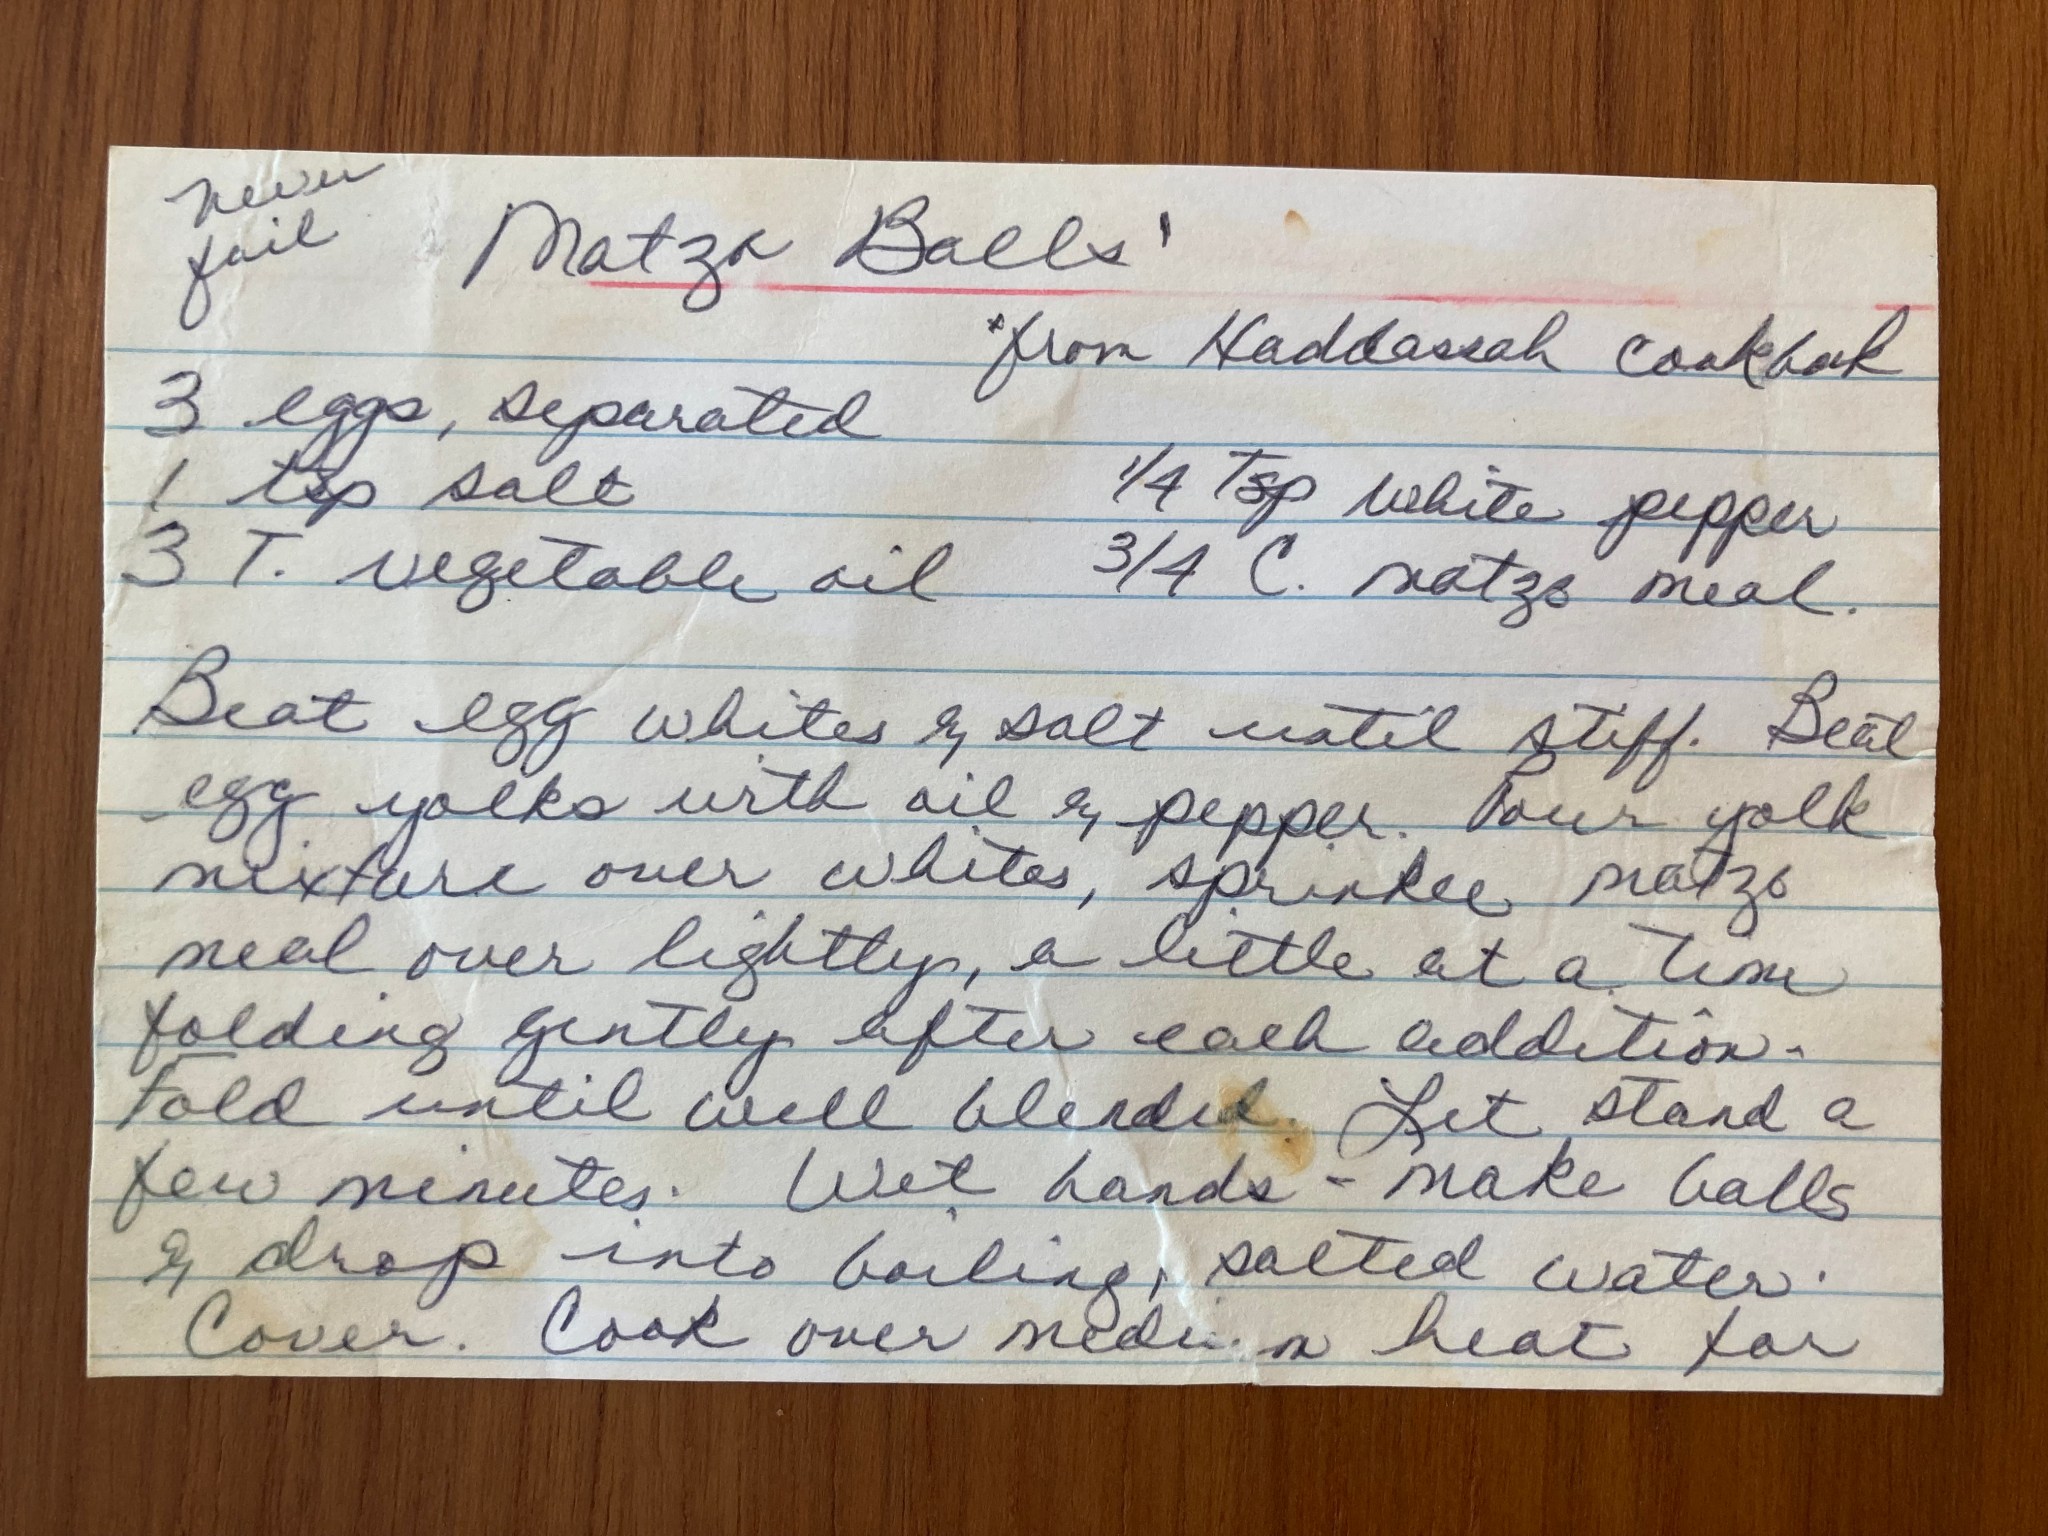 never
fail
Matzo Balls'
*from Haddassah Cookbook
3 eggs, separated
1 tsp salt
1/4 Tsp white pepper
3 T. vegetable oil
3/4 C. matzo meal.
Beat egg whites & salt until stiff. Beat
egg yolks with oil & pepper. Pour yolk
mixture over whites, sprinkle matzo
meal over lightly, a little at a time
folding gently after each addition.
Fold until well blended. Let stand a
few minutes. Wet hands - make balls
& drop into boiling, salted water.
Cover. Cook over medium heat for